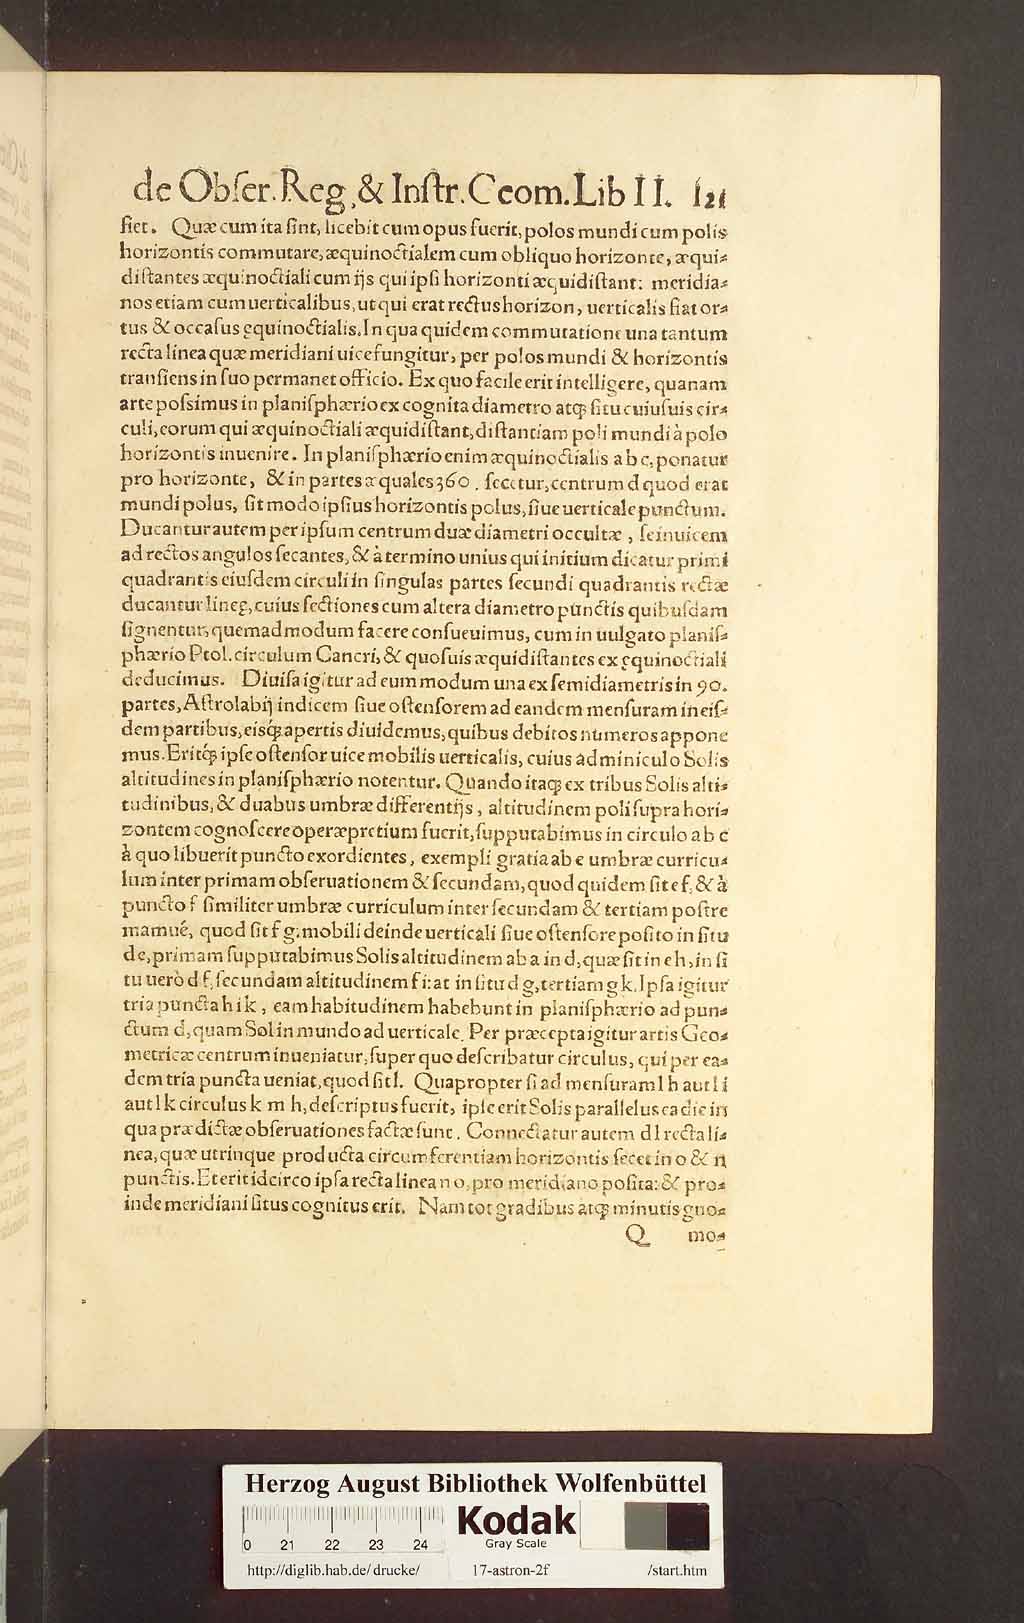 de Obſer. Reg, & Inſtr. Geom. Lib II. 121
fiet. Quæ cum ita ſint, licebit cum opus fuerit, polos mundi cum polis
horizontis commutare, æquinoctialem cum obliquo horizonte, æqui⸗
diſtantes æquinoctiali cum ijs qui ipſi horizonti æquidiſtant: meridia⸗
nos etiam cum uerticalibus, ut qui erat rectus horizon, uerticalis fiat or⸗
tus & occaſus ęquinoctialis. In qua quidem commutatione una tantum
recta linea quæ meridiani uice fungitur, per polos mundi & horizontis
tranſiens in ſuo permanet officio. Ex quo facile erit intelligere, quanam
arte poſsimus in planiſphærio ex cognita diametro atq́ ſitu cuiuſuis cir⸗
culi, eorum qui æquinoctiali æquidiſtant, diſtantiam poli mundi à polo
horizontis inuenire. In planiſphærio enim æquinoctialis a b c, ponatur
pro horizonte, & in partes æquales 360. ſecetur, centrum d quod erat
mundi polus, ſit modo ipſius horizontis polus, ſiue uerticale punctum.
Ducantur autem per ipſum centrum duæ diametri occultæ, ſeinuicem
ad rectos angulos ſecantes, & à termino unius qui initium dicatur primi
quadrantis eiuſdem circuli in ſingulas partes ſecundi quadrantis rectæ
ducantur lineę, cuius ſectiones cum altera diametro punctis quibuſdam
ſignentur, quemadmodum facere conſueuimus, cum in uulgato planiſ⸗
phærio Ptol. circulum Cancri, & quoſuis æquidiſtantes ex ęquinoctiali
deducimus. Diuiſa igitur ad eum modum una ex ſemidiametris in 90.
partes, Aſtrolabij indicem ſiue oſtenſorem ad eandem menſuram in eiſ⸗
dem partibus, eisq́; apertis diuidemus, quibus debitos numeros appone
mus. Eritq́; ipſe oſtenſor uice mobilis uerticalis, cuius adminiculo Solis
altitudines in planiſphærio notentur. Quando itaq́; ex tribus Solis alti⸗
tudinibus, & duabus umbræ differentijs, altitudinem poli ſupra hori⸗
zontem cognoſcere operæpretium fuerit, ſupputabimus in circulo a b c
à quo libuerit puncto exordientes, exempli gratia ab e umbræ curricu⸗
lum inter primam obſeruationem & ſecundam, quod quidem ſit e f, & à
puncto f ſimiliter umbræ curriculum inter ſecundam & tertiam poſtre
mamué, quod ſit f g: mobili deinde uerticali ſiue oſtenſore poſito in ſitu
d e, primam ſupputabimus Solis altitudinem ab a in d, quæ ſit in e h, in ſi
tu uerò d f, ſecundam altitudinem f i: at in ſitu d g, tertiam g k. Ipſa igitur
tria puncta h i k, eam habitudinem habebunt in planiſphærio ad pun⸗
ctum d, quam Sol in mundo ad uerticale. Per præcepta igitur artis Geo⸗
metricæ centrum inueniatur, ſuper quo deſcribatur circulus, qui per ea⸗
dem tria puncta ueniat, quod ſit l. Quapropter ſi ad menſuram l h aut l i
aut l k circulus k m h, deſcriptus fuerit, ipſe erit Solis parallelus ea die in
qua prædictæ obſeruationes factæ ſunt. Connectatur autem d l recta li⸗
nea, quæ utrinque producta circumferentiam horizontis ſecet in o & n
punctis. Et erit idcirco ipſa recta linea n o, pro meridiano poſita: & pro⸗
inde meridiani ſitus cognitus erit. Nam tot gradibus atq́; minutis gno⸗
Q mo⸗
Herzog August Bibliothek Wolfenbüttel
0 21 22 23 24
Kodak
Gray Scale
http://diglib.hab.de/drucke/ 17-astron-2f /start.htm